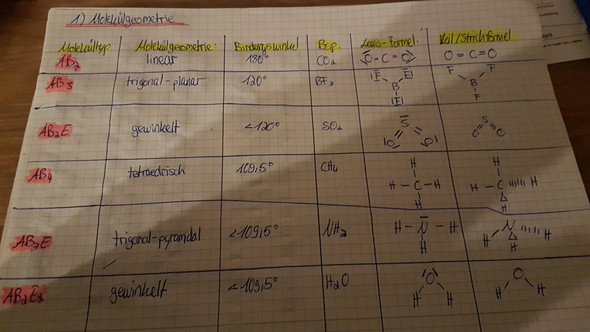 1) Molekülgeometrie
Molekültyp: Molekülgeometrie: Bindungswinkel Bsp. Lewis-Formel: Keil/Strichformel
AB₂ linear 180° CO₂ O=C=O O=C=O
AB₃ trigonal-planar 120° BF₃ F F B F F F B F
AB₂E gewinkelt <120° SO₂ S O O S O O
AB₄ tetraedrisch 109,5° CH₄ H H-C-H H H H C H H
AB₃E trigonal-pyramidal <109,5° NH₃ H-N-H H H N H H
AB₂E₂ gewinkelt <109,5° H₂O O H H O H H